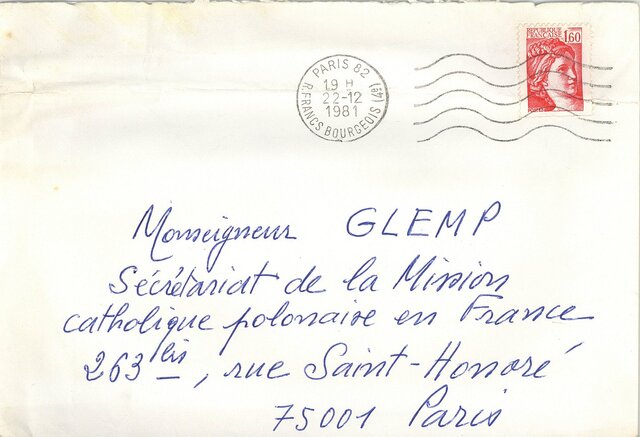 REPUBLIQUE
FRANÇAISE
1,60
PARIS 82
19 H
22-12
1981
R. FRANCS BOURGEOIS (4E)
Monseigneur GLEMP
Sécrétariat de la Mission
catholique polonaise en France
263 bis, rue Saint-Honoré
75001 Paris